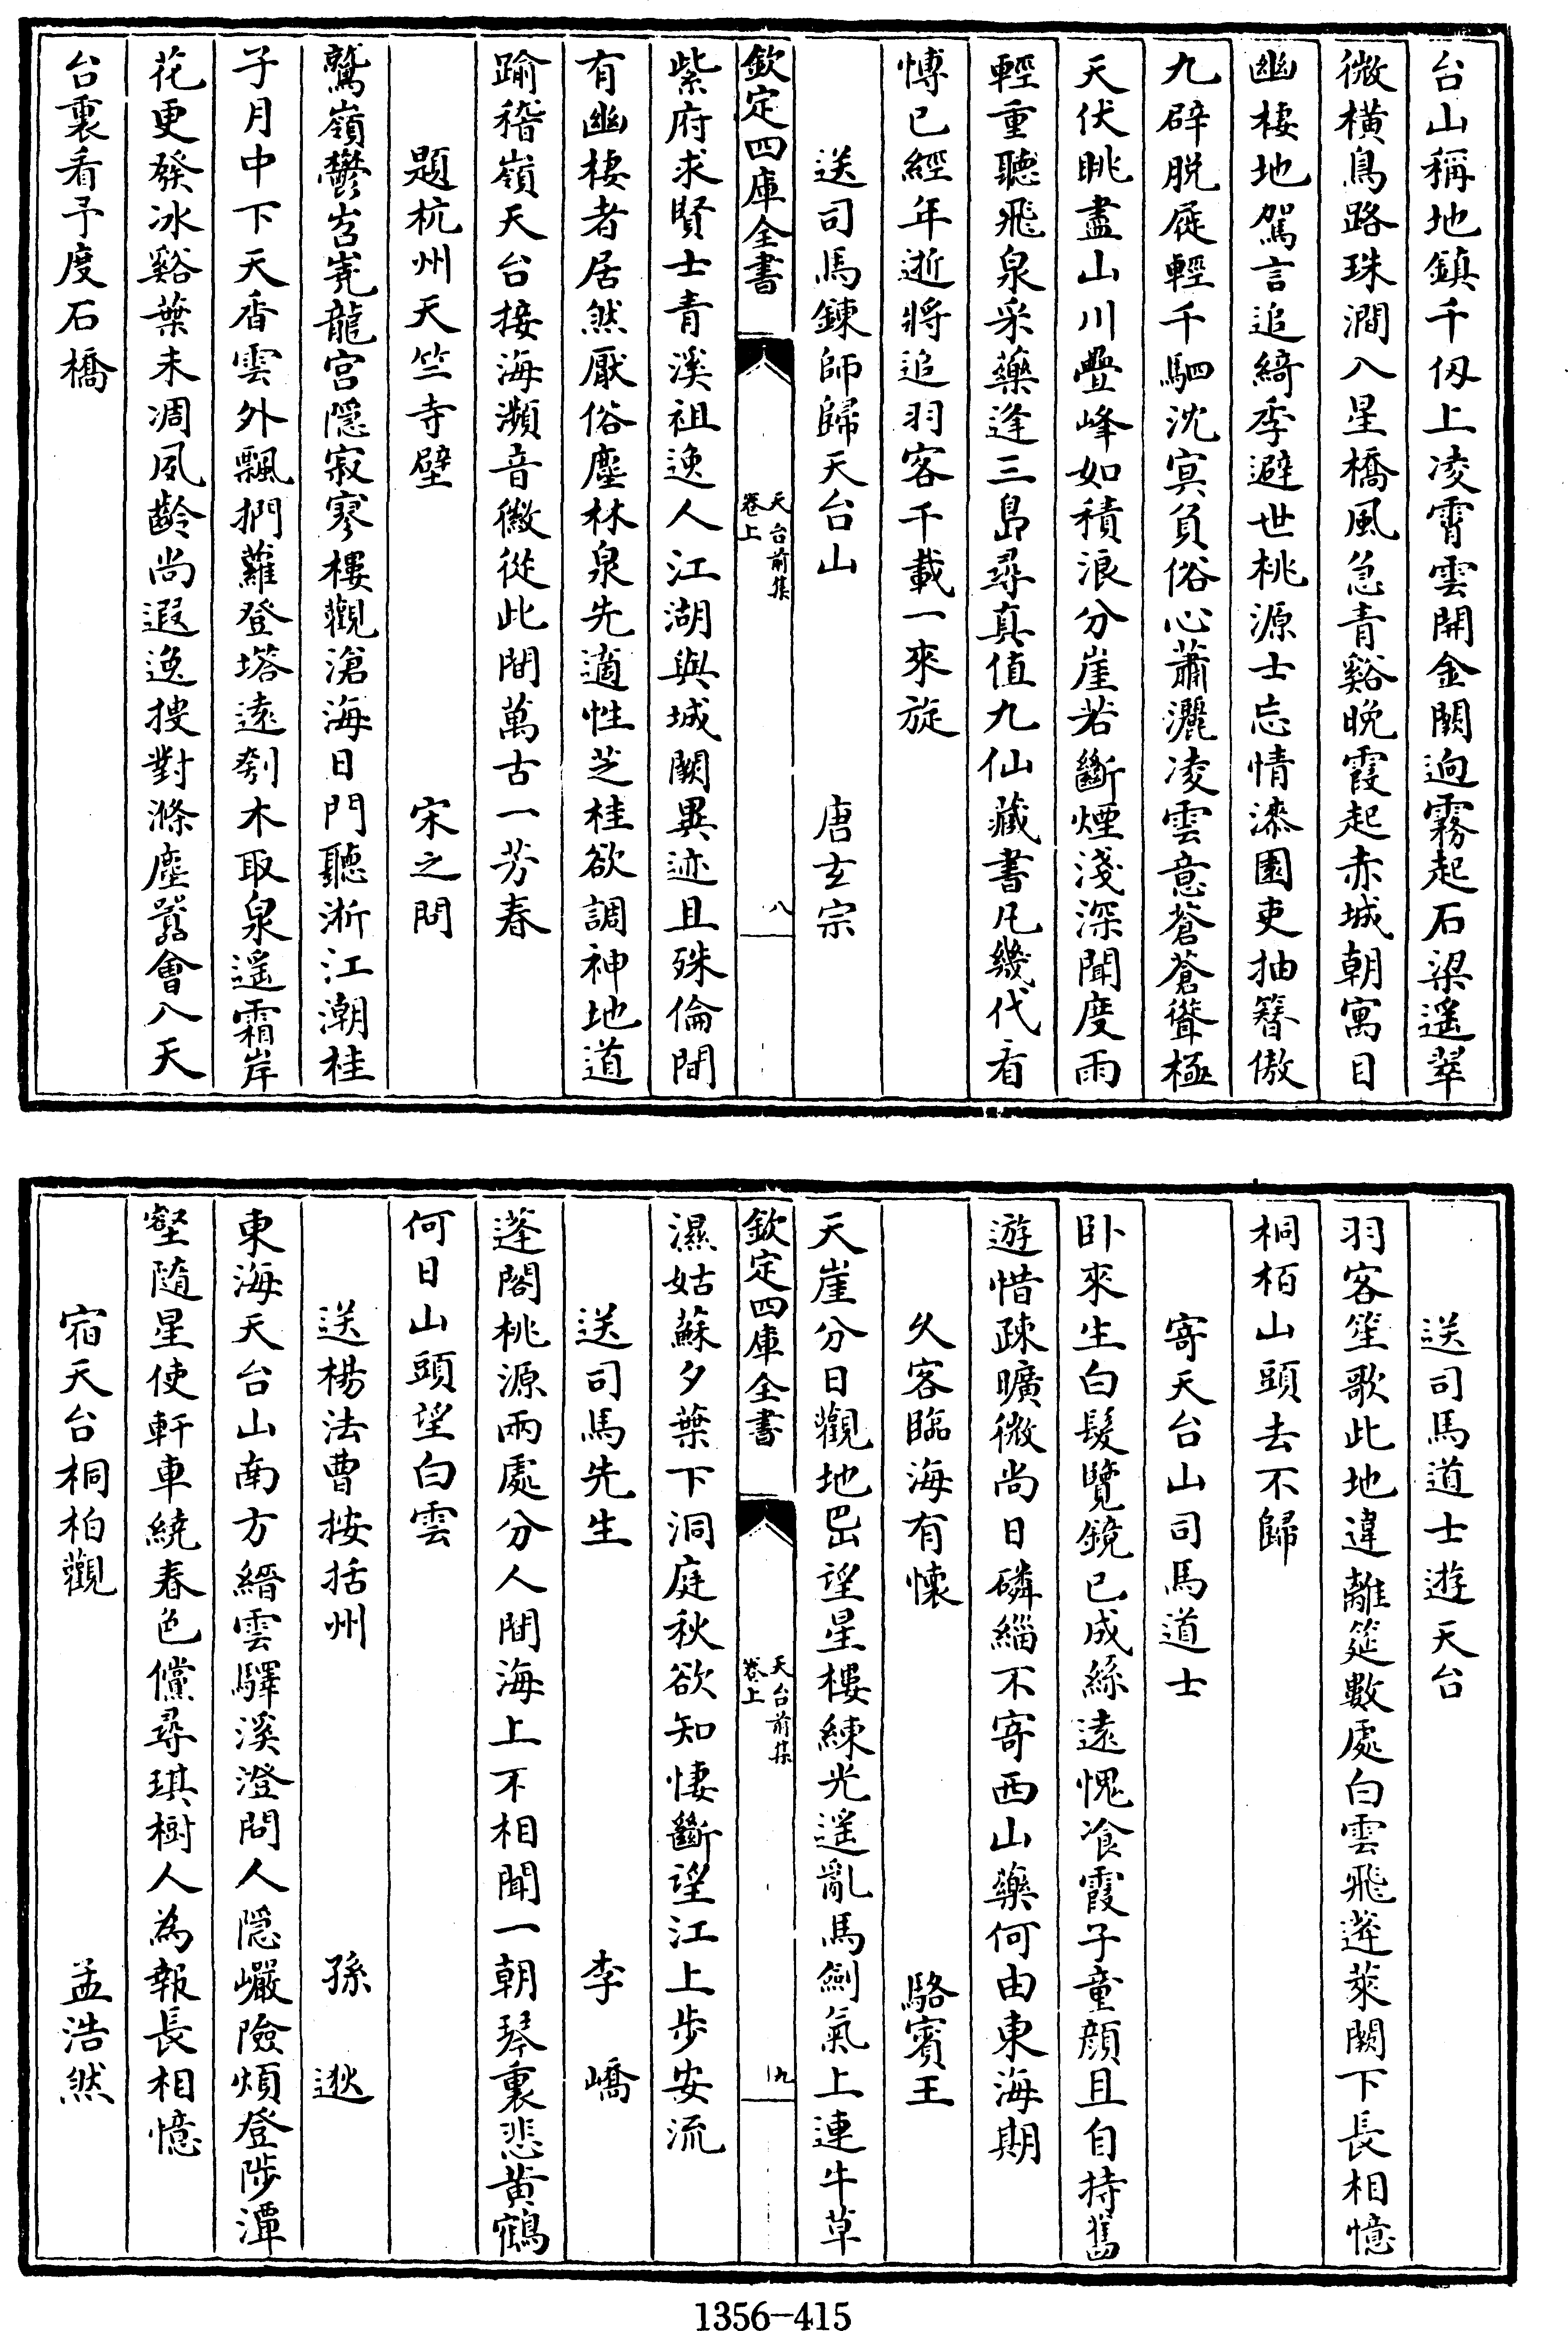 台山稱地鎮千仭上凌霄雲開金闕逈霧起石梁遥翠
微横鳥路珠澗入星橋風急青谿晚霞起赤城朝寓目
幽棲地駕言追綺季避世桃源士忘情漆園吏抽簪傲
九辟脱屣輕千駟沈㝠負俗心蕭灑凌雲意蒼蒼聳極
天伏眺盡山川疊峰如積浪分崖若斷煙淺深聞度雨
輕重聽飛泉采藥逢三島尋真值九仙藏書凡幾代看
愽已經年逝將追羽客千載一來旋
送司馬鍊師歸天台山　唐玄宗
欽定四庫全書　天台前集卷上　八
紫府求賢士青溪祖逸人江湖與城闕異迹且殊倫間
有幽棲者居然厭俗塵林泉先適性芝桂欲調神地道
踰稽嶺天台接海瀕音徽從此間萬古一芳春
題杭州天竺寺壁　宋之問
鷲嶺鬱岧嶤龍宫隱寂寥樓觀滄海日門聽浙江潮桂
子月中下天香雲外飄捫蘿登塔遠刳木取泉遥霜岸
花更發冰谿葉未凋夙齡尚遐逸搜對滌塵囂會入天
台裏看予度石橋
送司馬道士遊天台
羽客笙歌此地違離筵數處白雲飛蓬萊闕下長相憶
桐栢山頭去不歸
寄天台山司馬道士
卧來生白髮覽鏡已成絲逺愧飡霞子童顔且自持舊
遊惜疎曠微尚日磷緇不寄西山藥何由東海期
久客臨海有懷　駱賓王
天崖分日觀地岊望星樓練光遥亂馬劍氣上連牛草
濕姑蘇夕葉下洞庭秋欲知悽斷望江上步安流
送司馬先生　李嶠
蓬閣桃源兩處分人間海上不相聞一朝琴裏悲黄鶴
何日山頭望白雲
送楊法曹按括州　孫逖
東海天台山南方縉雲驛溪澄問人隱巖險煩登陟潭
壑隨星使軒車繞春色儻尋琪樹人為報長相憶
宿天台桐柏觀　孟浩然
欽定四庫全書　天台前集卷上　九
1356-415